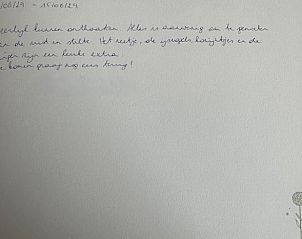 /08/24 - 15/08/24
heerlijk kunnen onthaasten. Alles is aanwezig om te genieten
en de rust en stilte. Het nestje, de vogels, konijntjes en de
zijn een leuke extra
komen graag nog eens terug!